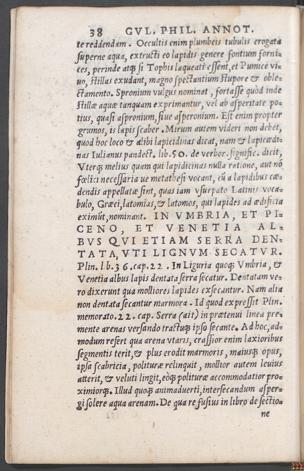 38 GVL. PHIL. ANNOT.
te reddendam. Occultis enim plumbeis tubulis erogata
superne aqua, extructi eo lapidis genere fontium forni-
ces, perinde atq; si Tophis laqueati essent, et Pumice vi-
uo, stillas exudant, magno spectantium stupore & oble-
ctamento. Spronium vulgus nominat, fortasse quòd inde
stillæ aquæ tanquam exprimantur, vel ab asperitate po-
tius, quasi aspronium, siue asperonium. Est enim propter
grumos, is lapis scaber. Mirum autem videri non debet,
quòd hoc loco & alibi lapicidinas dicat, nam & lapicædi-
nas Iulianus pandect. lib. 50. de verbor. signific. dicit,
Vterq; melius quàm qui lapidicinas nulla ratione, aut nõ
fœlici necessaria ue metathesi vocant, cũ a lapidibus cæ-
dendis appellatæ sint, quas iam vsurpato Latinis voca-
bulo, Græci, latomias, & lotomos, qui lapides ad ædificia
eximũt, nominant. IN VMBRIA, ET PI-
CENO, ET VENETIA AL-
BVS QVI ETIAM SERRA DEN-
TATA, VTI LIGNVM SECATVR.
Plin. lib. 36. cap. 22. In Liguria quoq; Vmbria, &
Venetia albus lapis dentata serra secatur. Dentatam ve-
ro dixerunt qua molliores lapides exsecantur. Nam alia
non dentata secantur marmora. Id quod expressit Plin.
memorato. 22. cap. Serra (ait) in prætenui linea pre-
mente arenas versando tractuq; ipso secante. Ad hoc, ad-
modum refert qua arena vtaris, crassior enim laxioribus
segmentis terit, & plus erodit marmoris, maiusq; opus,
ipsa scabricia, polituræ relinquit, mollior autem leuius
atterit, & veluti lingit, eòq; polituræ accommodatior pro-
ximiorq;. Illud quoq; animaduerti, intersecandum asper-
gi solere aqua arenam. De qua re fusius in libro de sectio-
ne